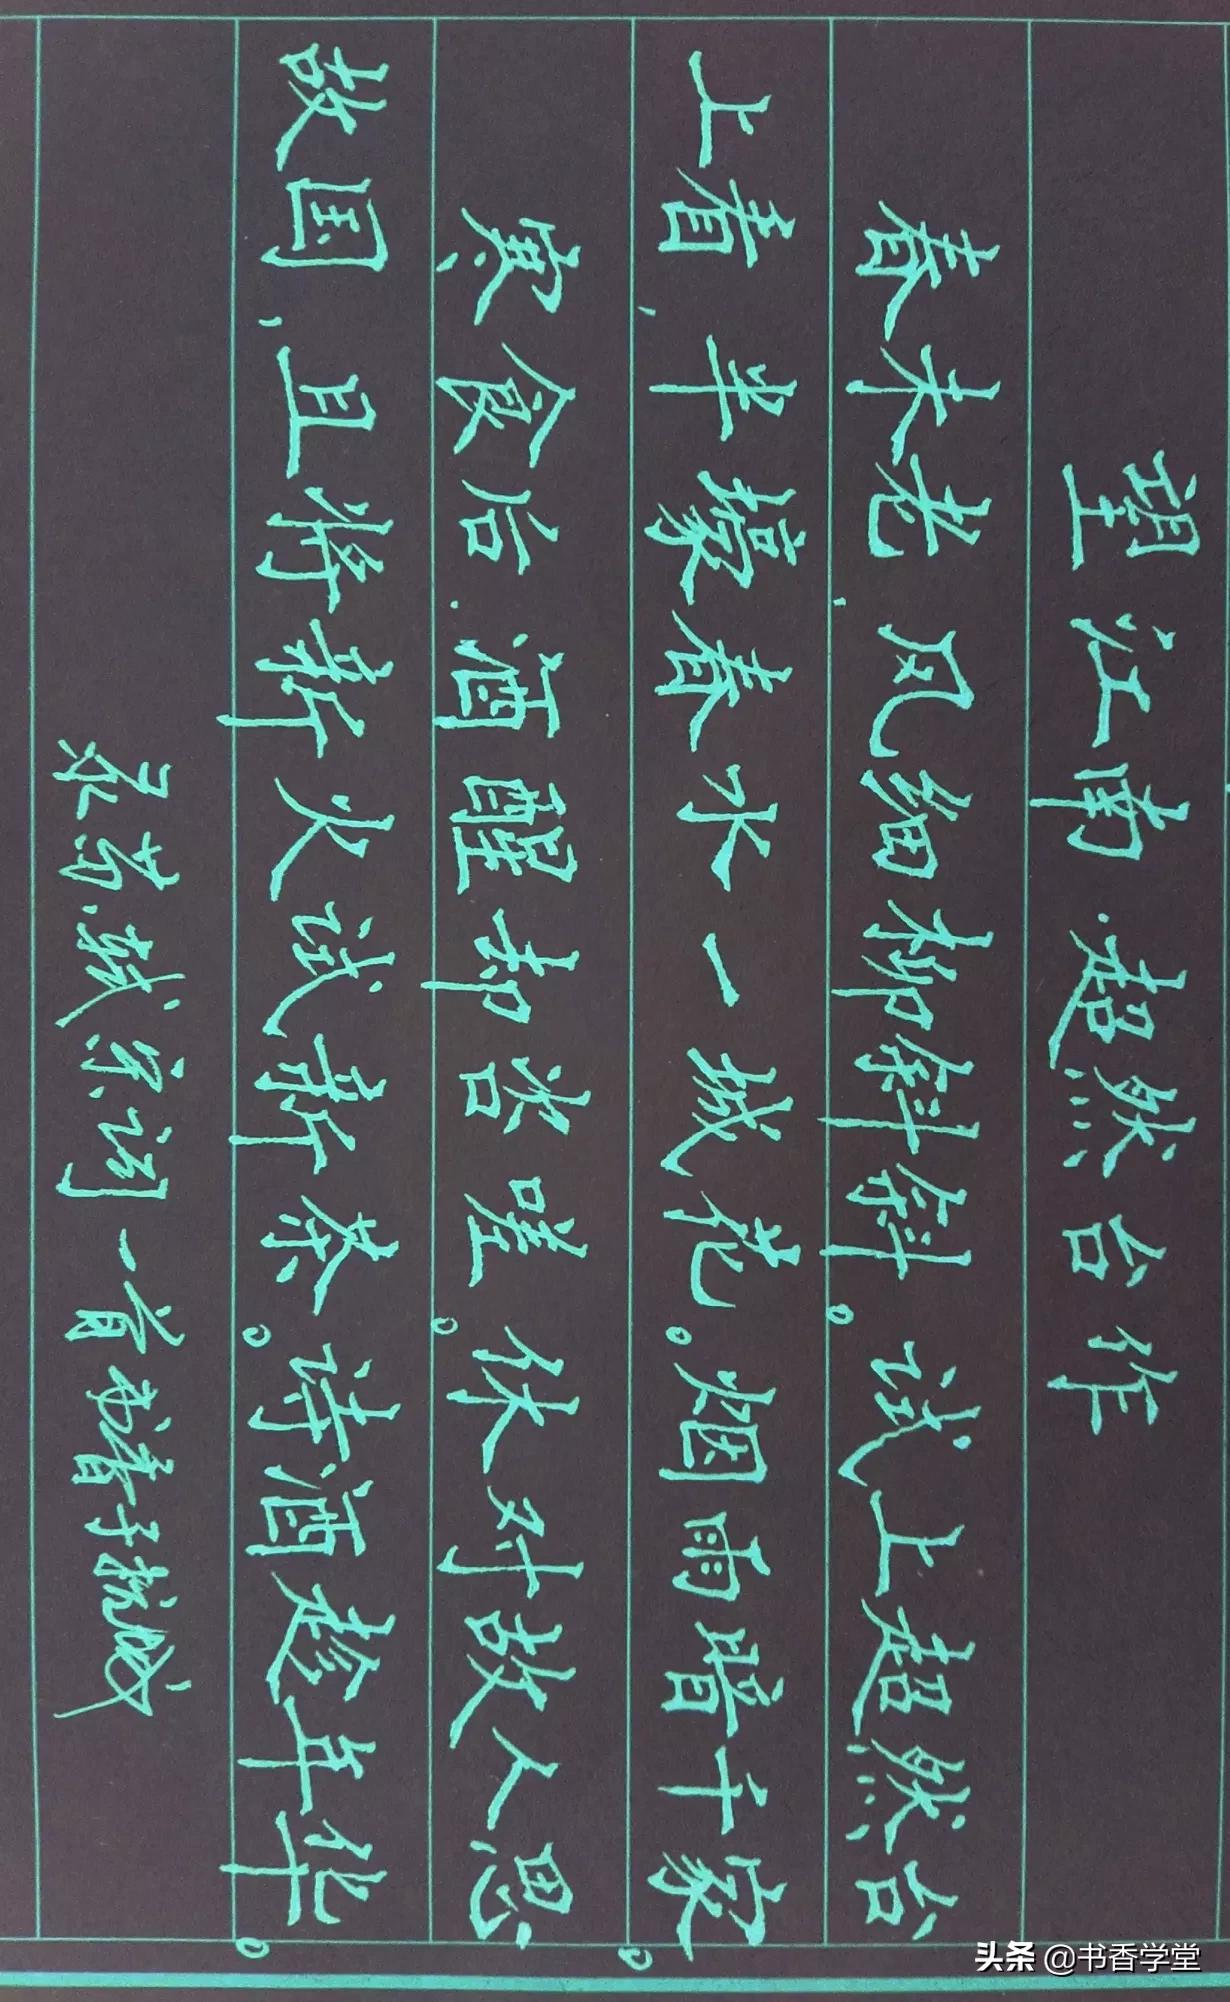 望江南.超然台作
春未老,风细柳斜斜。试上超然台
上看,半壕春水一城花。烟雨暗千家。
寒食后.酒醒却咨嗟。休对故人思
故国,且将新火试新茶。诗酒趁年华。
录苏轼宋词一首
头条 @书香学堂